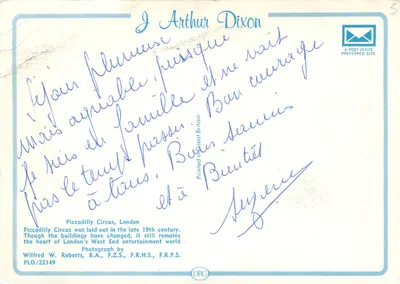 J Arthur Dixon
A POST OFFICE
PREFERRED SIZE
5
Séjour pluvieux
mais agréable puisque
je suis en famille et ne voit
pas le temps passer. Bon courage
à tous. Bons
et à Bientôt
Piccadilly Circus, London
Piccadilly Circus was laid out in the late 19th century.
Though the buildings have changed, it still remains
the heart of London's West End entertainment world
Photograph by
Wilfred W. Roberts, B.A., F.Z.S., F.R.H.S., F.R.P.S.
PLD/22149
Printed in Great Britain
DRG